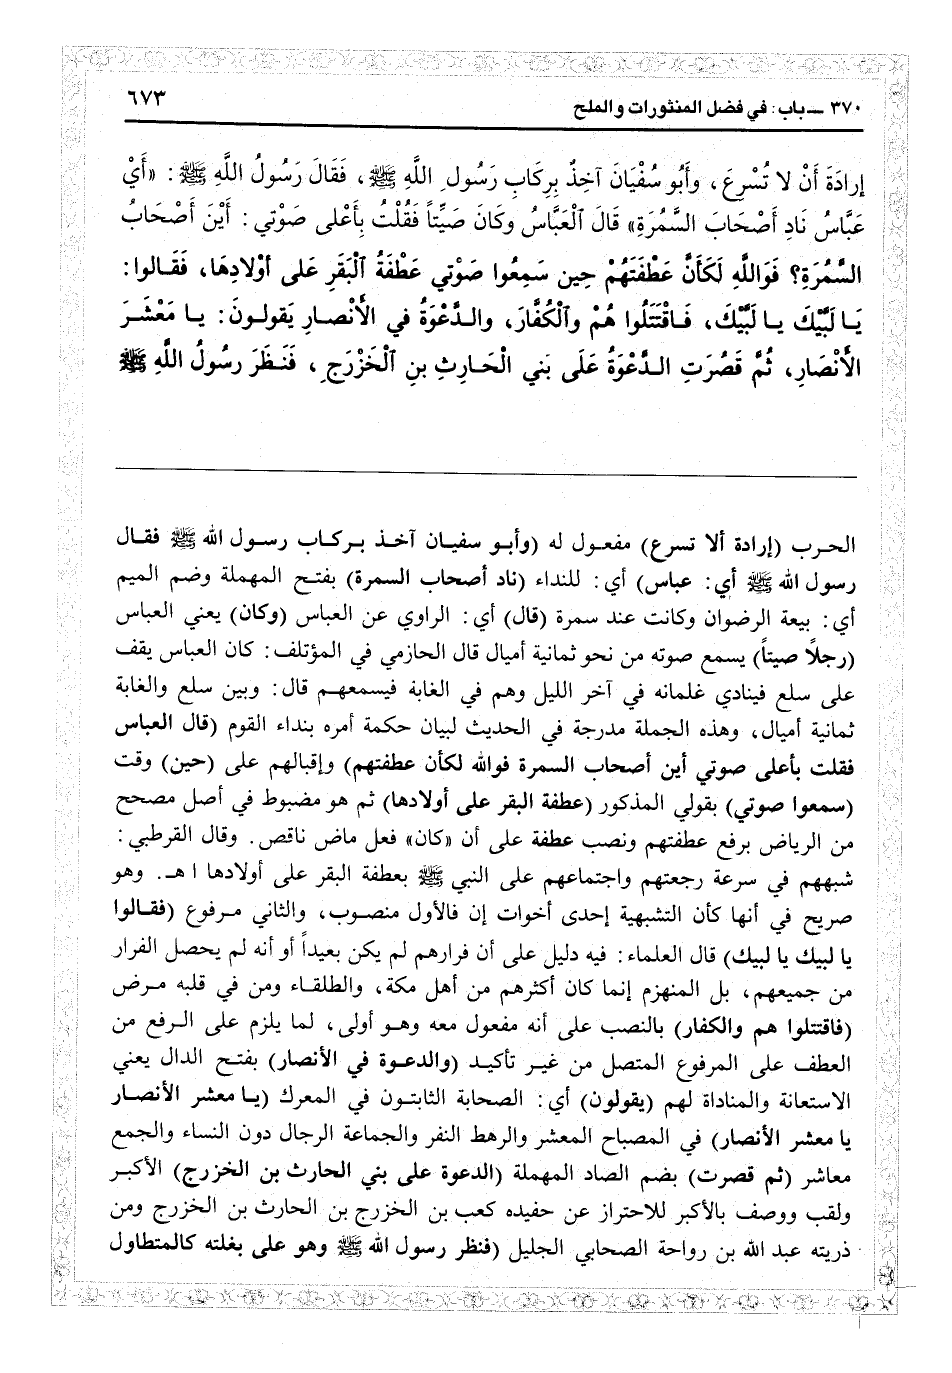 ٣٧٠ ــ باب: في فضل المنثورات والملح
٦٧٣
إرادَةَ أَنْ لا تُسْرِعَ، وأَبُو سُفْيَانَ آخِذٌ بِرِكَابِ رَسُولِ اللَّهِ ﷺ، فَقَالَ رَسُولُ اللَّهِ ﷺ: «أَيْ
عَبَّاسُ نَادِ أَصْحَابَ السَّمُرَةِ» قَالَ ٱلْعَبَّاسُ وكَانَ صَيِّتاً فَقُلْتُ بِأَعْلى صَوْتي: أَيْنَ أَصْحَابُ
السَّمُرَةِ؟ فَوَاللَّهِ لَكَأَنَّ عَطْفَتَهُمْ حِين سَمِعُوا صَوْتي عَطْفَةُ ٱلْبَقَرِ عَلى أوْلادِهَا، فَقَالوا:
يَا لَبَّيْكَ يا لَبَّيْكَ، فَاقْتَتَلُوا هُمْ وٱلْكُفَّارَ، والدَّعْوَةُ في الأَنْصارِ يَقولونَ: يا مَعْشَرَ
الأَنْصَارِ، ثُمَّ قَصُرَتِ الدَّعْوَةُ عَلَى بَني الْحَارِثِ بنِ ٱلْخَزْرَجِ، فَنَظَرَ رسُولُ اللَّهِ ﷺ
الحرب (إرادة ألا تسرع) مفعول له (وأبو سفيان آخذ بركاب رسول الله ﷺ فقال
رسول الله ﷺ أي: عباس) أي: للنداء (ناد أصحاب السمرة) بفتح المهملة وضم الميم
أي: بيعة الرضوان وكانت عند سمرة (قال) أي: الراوي عن العباس (وكان) يعني العباس
(رجلاً صيتاً) يسمع صوته من نحو ثمانية أميال قال الحازمي في المؤتلف: كان العباس يقف
على سلع فينادي غلمانه في آخر الليل وهم في الغابة فيسمعهم قال: وبين سلع والغابة
ثمانية أميال، وهذه الجملة مدرجة في الحديث لبيان حكمة أمره بنداء القوم (قال العباس
فقلت بأعلى صوتي أين أصحاب السمرة فوالله لكأن عطفتهم) وإقبالهم على (حين) وقت
(سمعوا صوتي) بقولي المذكور (عطفة البقر على أولادها) ثم هو مضبوط في أصل مصحح
من الرياض برفع عطفتهم ونصب عطفة على أن «كان» فعل ماض ناقص. وقال القرطبي:
شبههم في سرعة رجعتهم واجتماعهم على النبي ﷺ بعطفة البقر على أولادها ا هـ. وهو
صريح في أنها كأن التشبهية إحدى أخوات إن فالأول منصوب، والثاني مرفوع (فقالوا
يا لبيك يا لبيك) قال العلماء: فيه دليل على أن فرارهم لم يكن بعيداً أو أنه لم يحصل الفرار
من جميعهم، بل المنهزم إنما كان أكثرهم من أهل مكة، والطلقاء ومن في قلبه مرض
(فاقتتلوا هم والكفار) بالنصب على أنه مفعول معه وهو أولى، لما يلزم على الرفع من
العطف على المرفوع المتصل من غير تأكيد (والدعوة في الأنصار) بفتح الدال يعني
الاستعانة والمناداة لهم (يقولون) أي: الصحابة الثابتون في المعرك (يا معشر الأنصار
يا معشر الأنصار) في المصباح المعشر والرهط النفر والجماعة الرجال دون النساء والجمع
معاشر (ثم قصرت) بضم الصاد المهملة (الدعوة على بني الحارث بن الخزرج) الأكبر
ولقب ووصف بالأكبر للاحتراز عن حفيده كعب بن الخزرج بن الحارث بن الخزرج ومن
ذريته عبد الله بن رواحة الصحابي الجليل (فنظر رسول الله ﷺ وهو على بغلته كالمتطاول